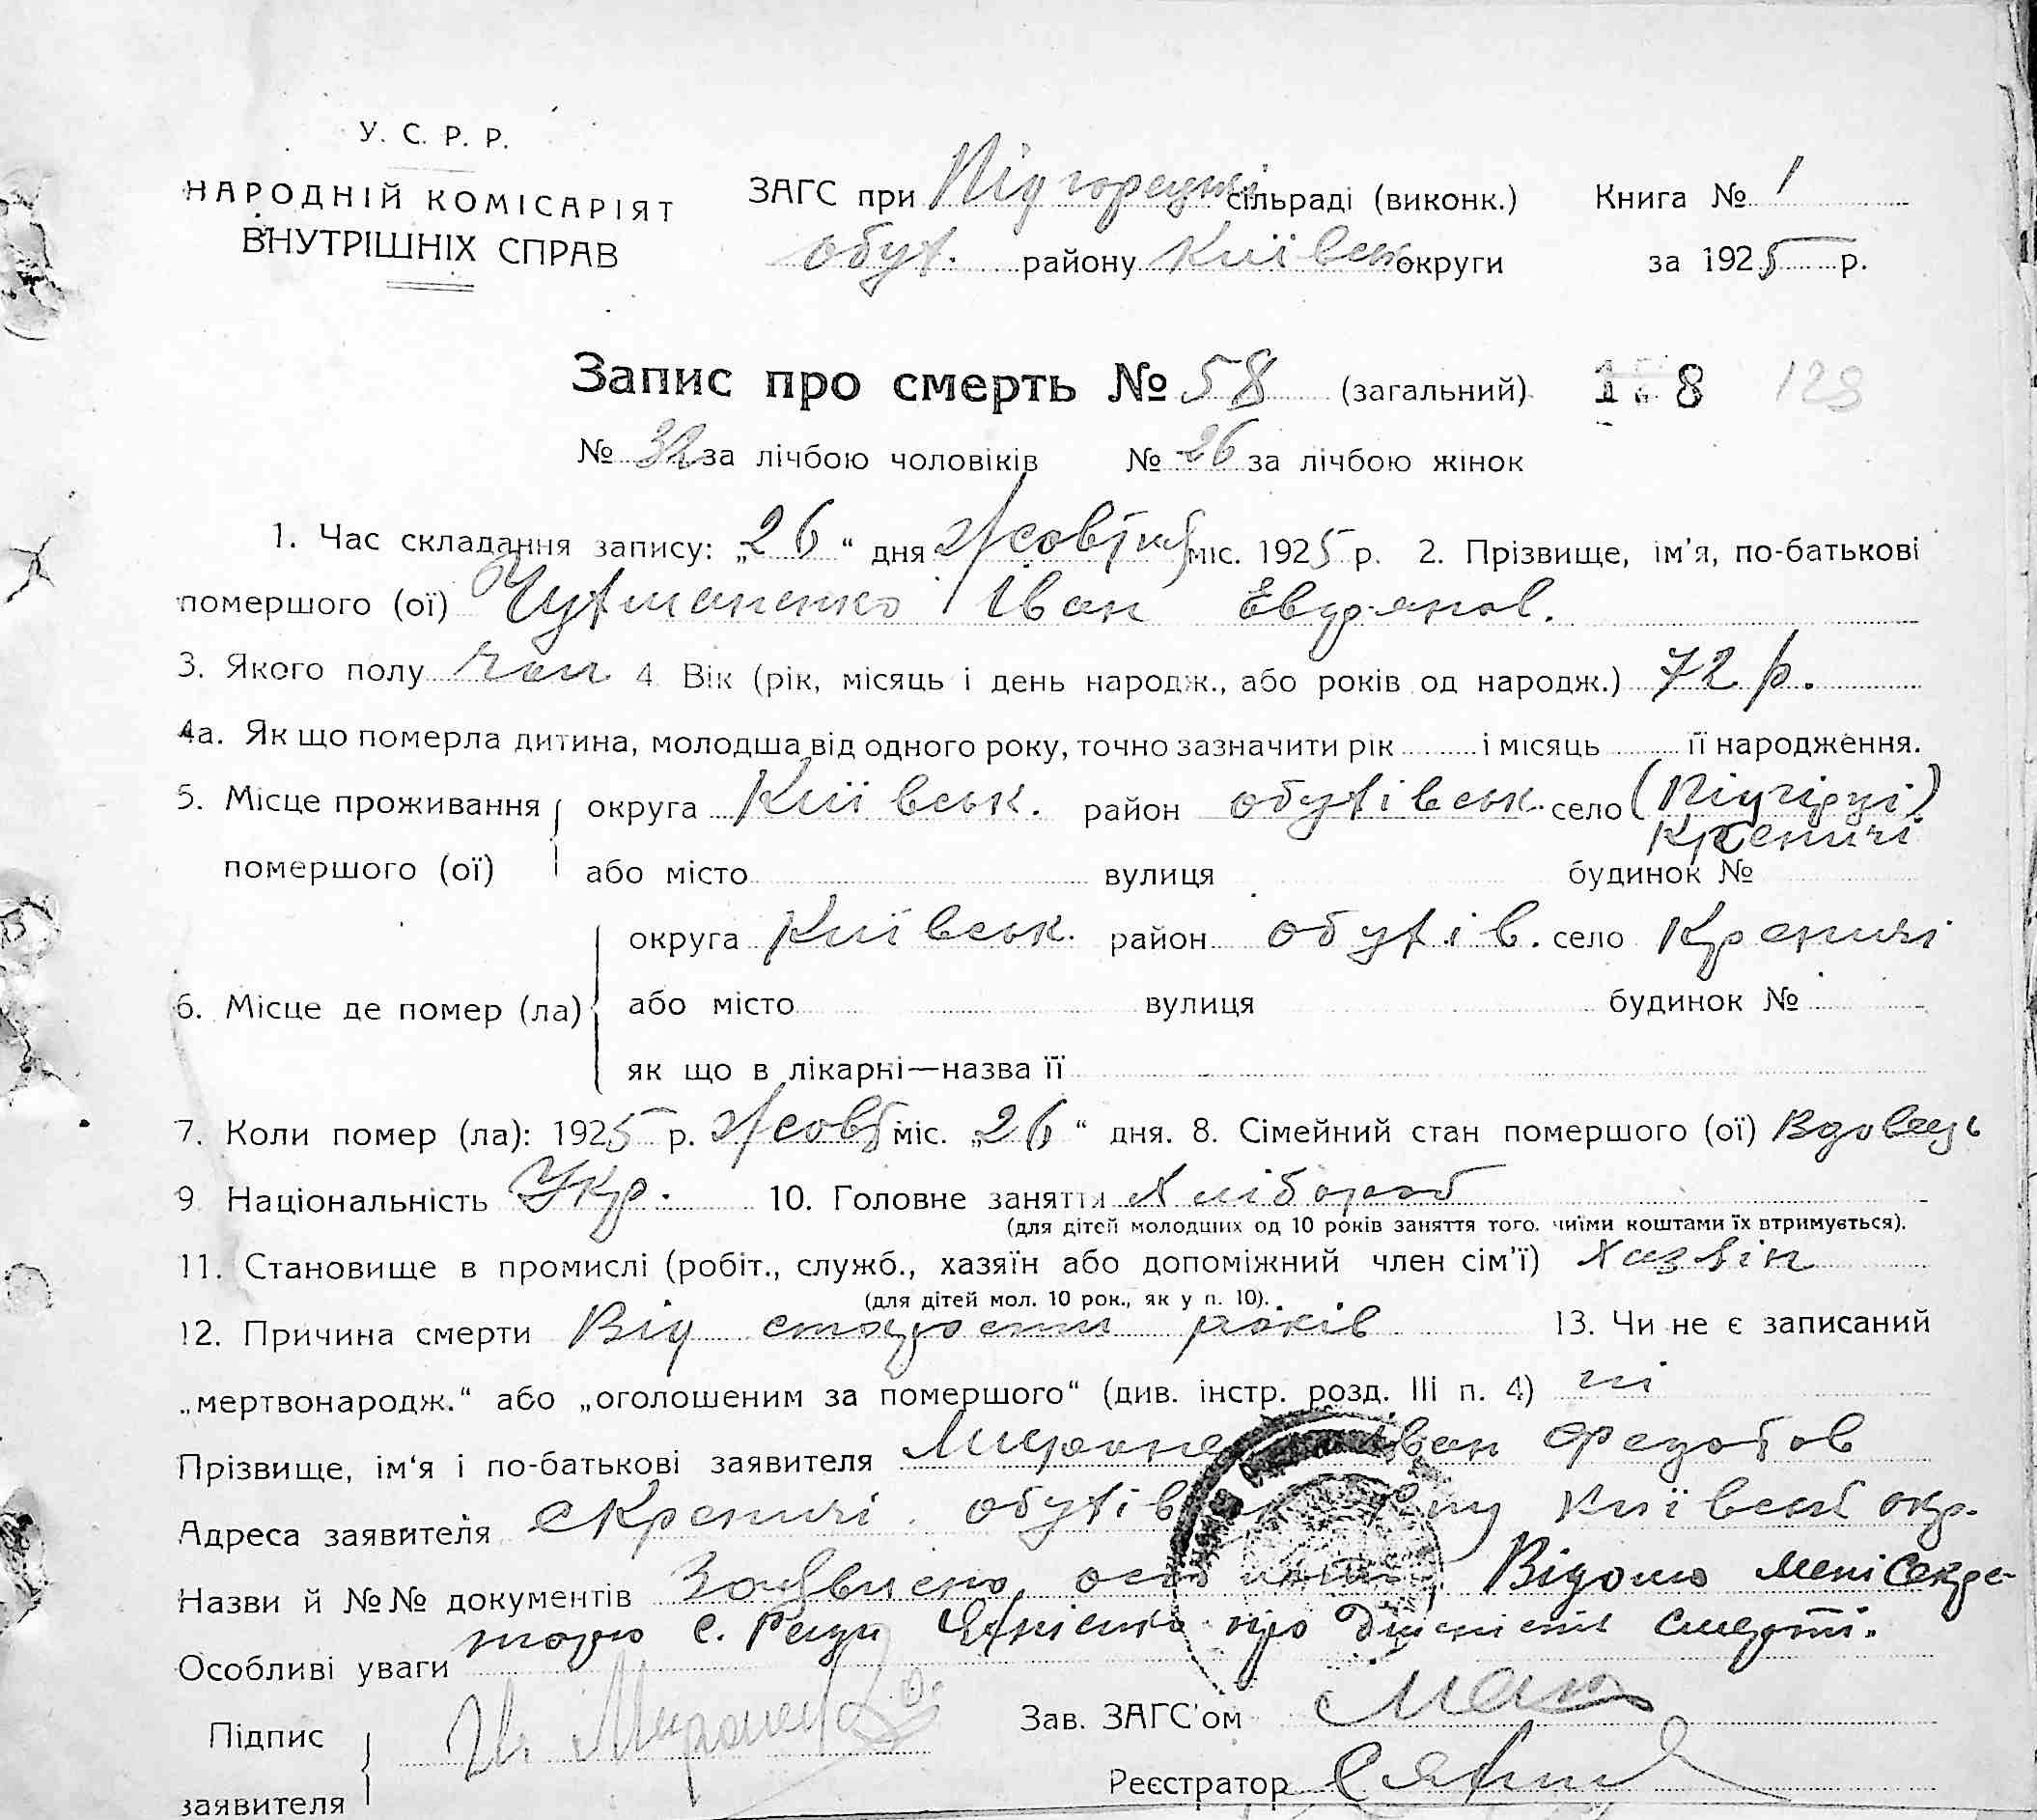 У. С. Р. Р.
НАРОДНІЙ КОМІСАРІЯТ
ВНУТРІШНІХ СПРАВ
ЗАГС при Підгорецькі сільраді (виконк.) Книга № 1
обух. району Київськ округи за 1925 р.
Запис про смерть № 58 (загальний) 128
№ 32 за лічбою чоловіків № 26 за лічбою жінок
1. Час складання запису: „26“ дня Жовтня міс. 1925 р. 2. Прізвище, ім'я, по-батькові
помершого (ої) Іван
3. Якого полу чол 4 Вік (рік, місяць і день народж., або років од народж.) 72 р.
4а. Як що померла дитина, молодша від одного року, точно зазначити рік і місяць її народження.
5. Місце проживання округа Київськ. район обухівськ. село (Підгірці)
Креничі
помершого (ої) або місто вулиця будинок №
округа Київськ. район обухів. село Креничі
6. Місце де помер (ла) або місто вулиця будинок №
як що в лікарні—назва її
7. Коли помер (ла): 1925 р. Жовт міс. „26“ дня. 8. Сімейний стан помершого (ої) Вдовець
9 Національність Укр. 10. Головне заняття Хлібороб
(для дітей молодших од 10 років заняття того, чиїми коштами їх втримується).
11. Становище в промислі (робіт., служб., хазяїн або допоміжний член сім'ї) Хазяїн
(для дітей мол. 10 рок., як у п. 10).
12. Причина смерти Від старости років 13. Чи не є записаний
„мертвонародж.“ або „оголошеним за помершого“ (див. інстр. розд. III п. 4) ні
Прізвище, ім'я і по-батькові заявителя Іван Федотов
Адреса заявителя с Креничі обухів Київської окр.
Назви й №№ документів Заявлено Відомо мені Секре-
тарю с. Ради про дійсність смерті.
Особливі уваги
Підпис
заявителя
Зав. ЗАГС'ом
Реєстратор